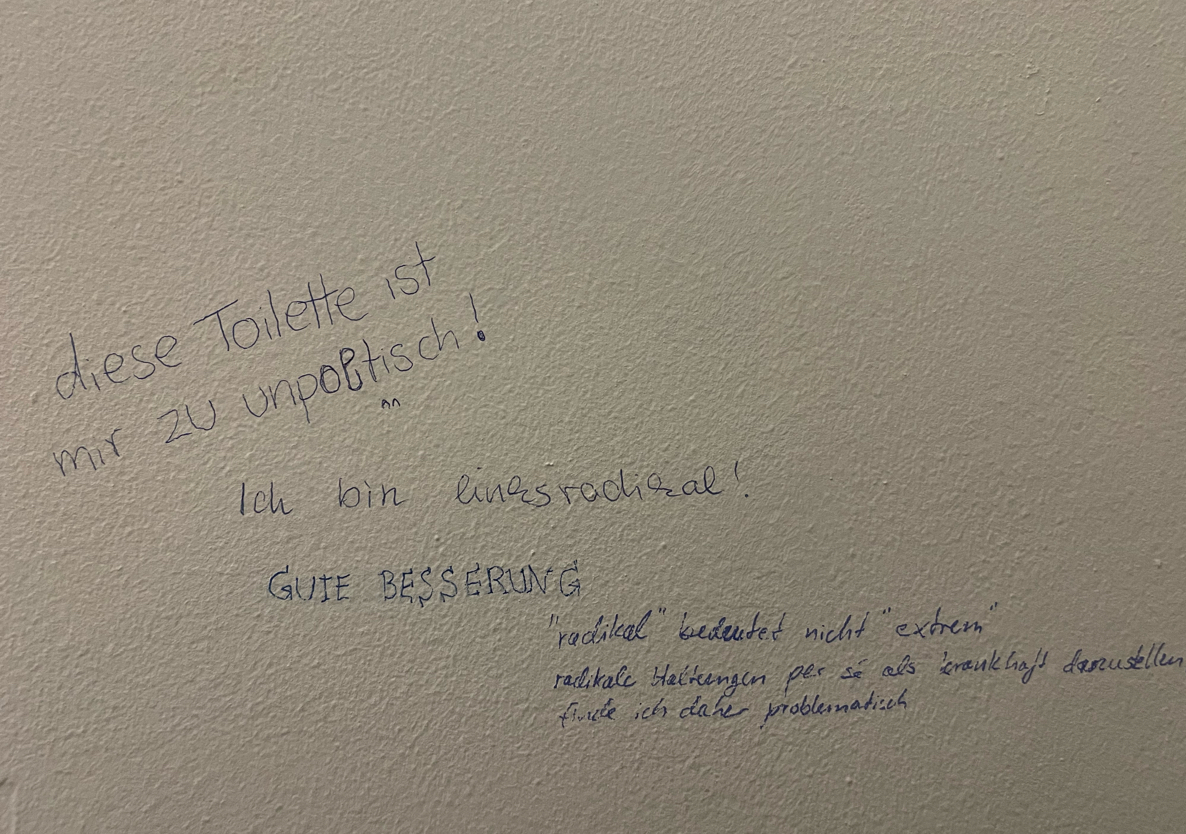 diese Toilette ist
mir zu unpolitisch!
^^
Ich bin linksradikal!
GUTE BESSERUNG
"radikal" bedeutet nicht "extrem"
radikale Haltungen per sé als krankhaft darzustellen
finde ich daher problematisch